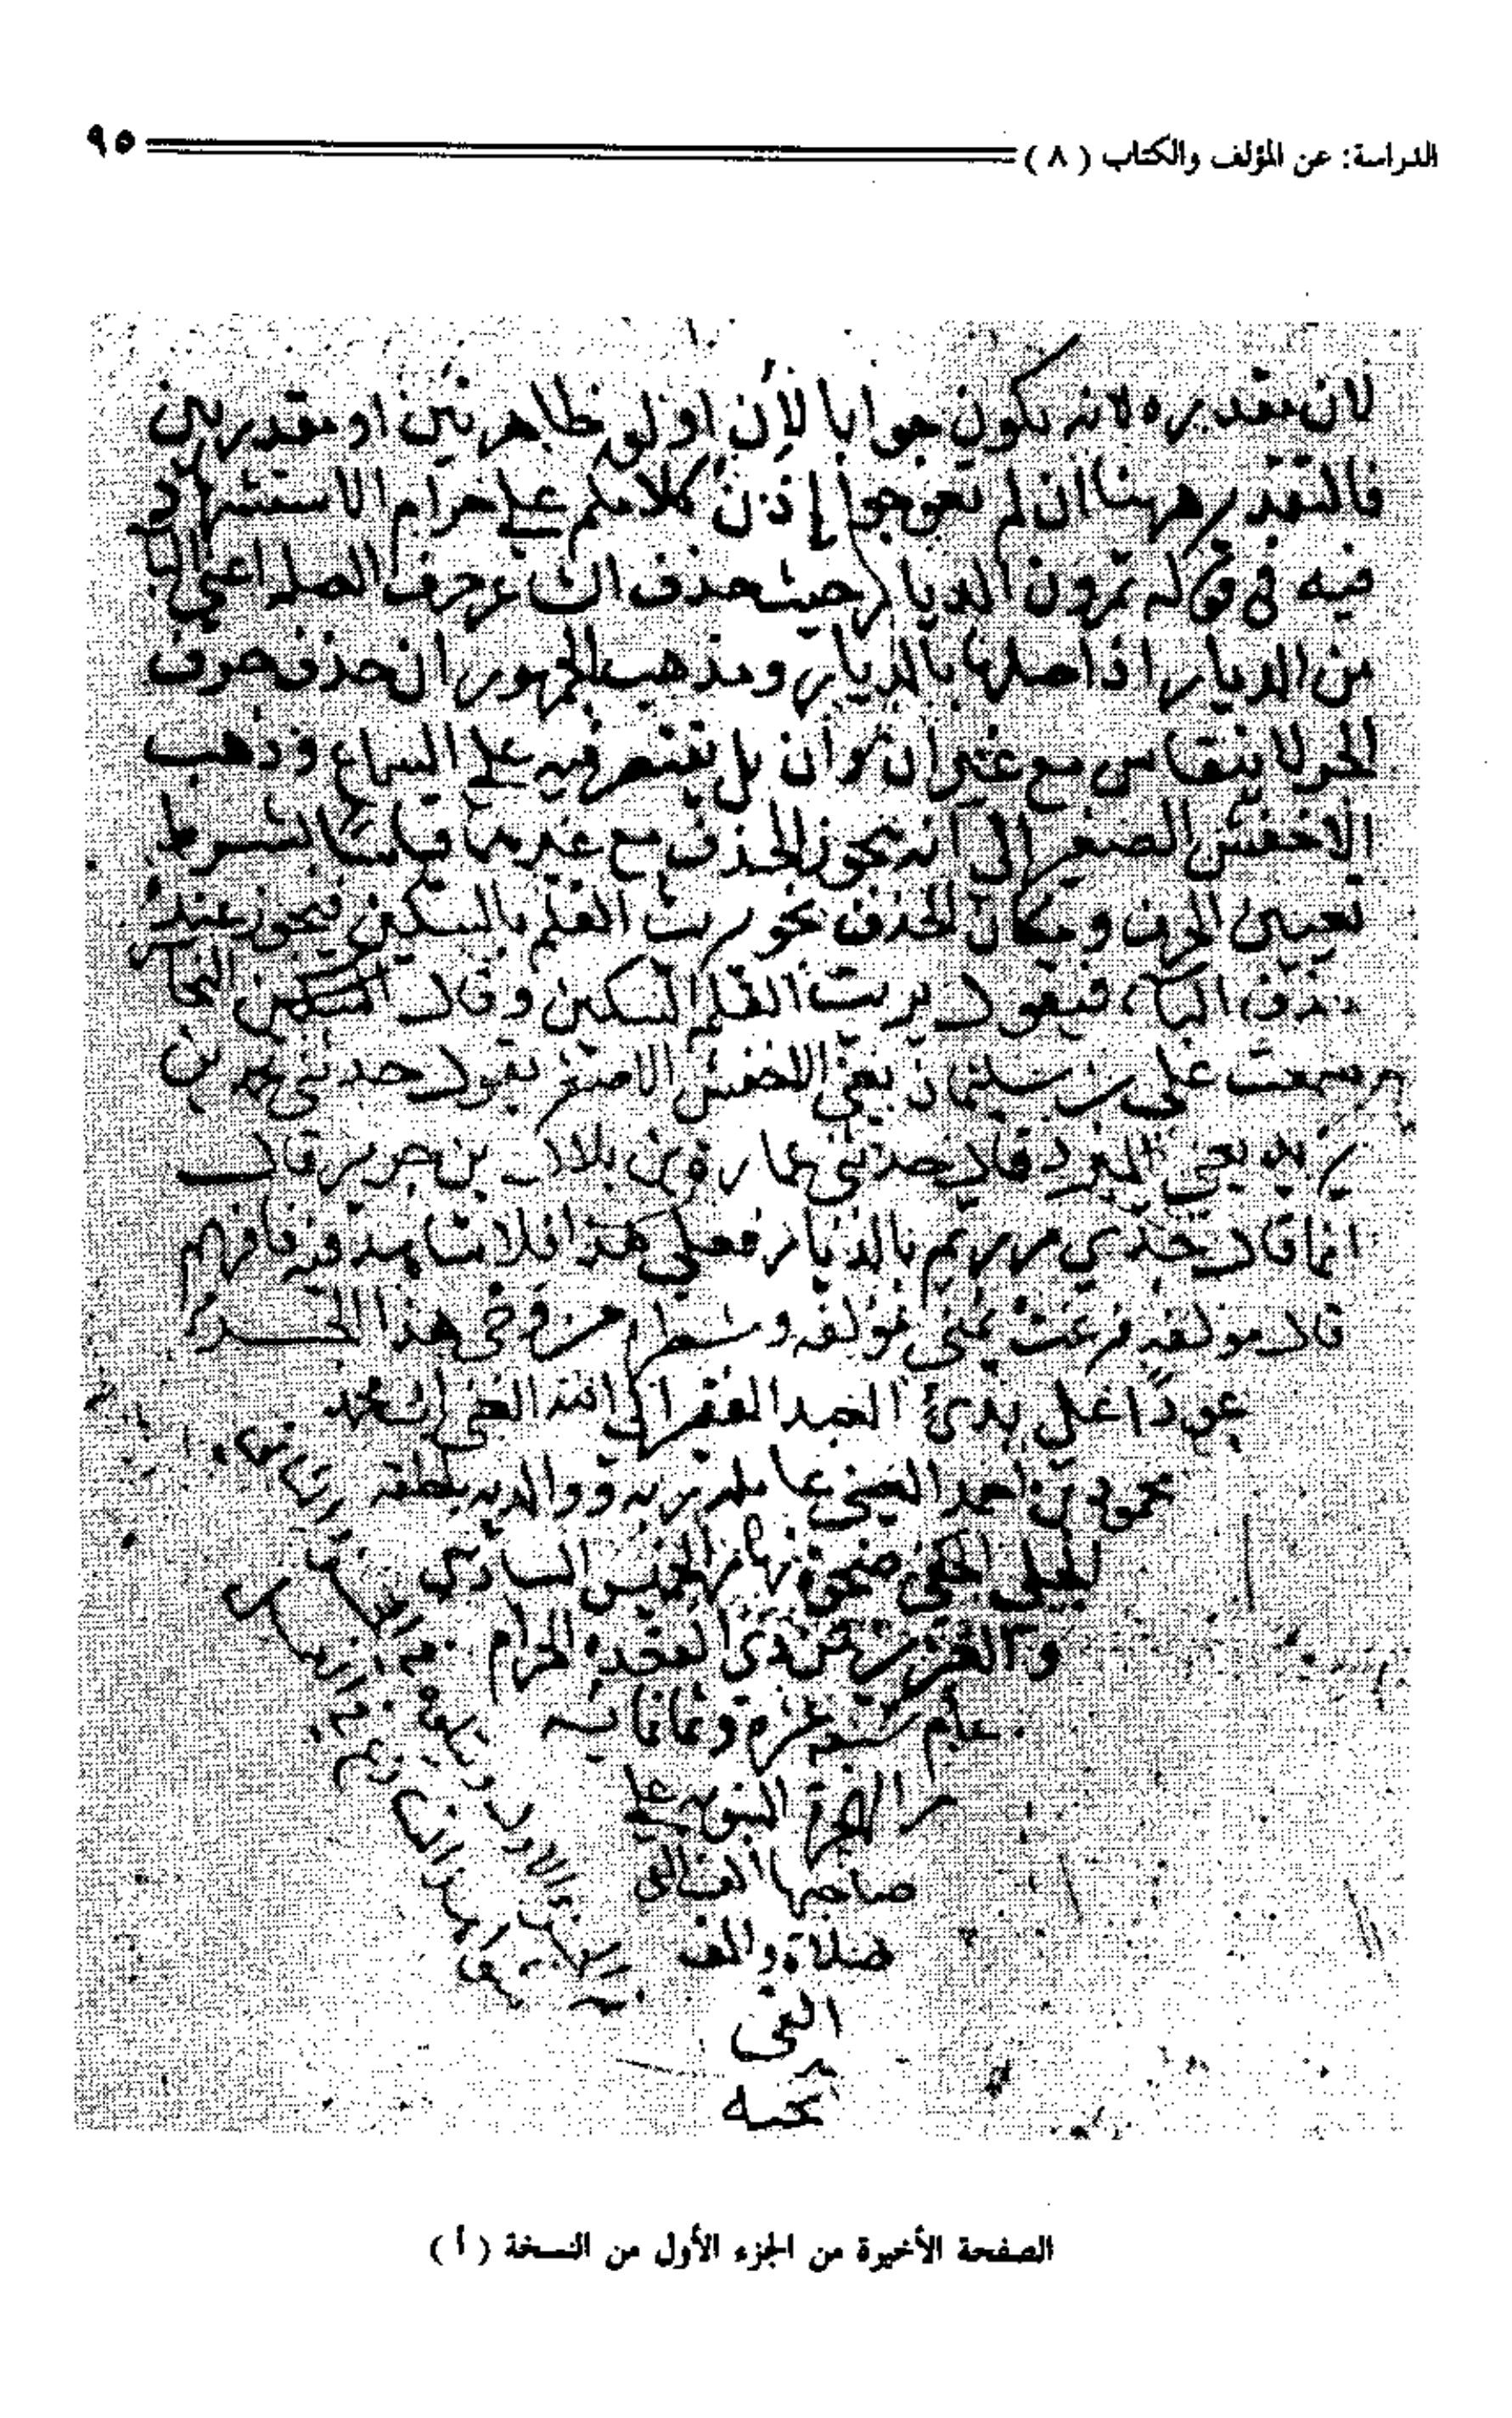 الدراسة: عن المؤلف والكتاب ( ٨ ) ٩٥
لان تقديره لانه يكون جوابا لإن او لو ظاهرتين او مقدرتين
فالتقدير ههنا ان لم تعوجوا إذن كلامكم علي حرام الاستشهاد
فيه في قوله تمرون الديار حيث حذف الشاعر حرف الصلة اعني البا
من الديار اذ اصلها بالديار ومذهب الجمهور ان حذف حرف
الجر لا ينقاس مع غير ان وأن بل يقتصر فيه علي السماع وذهب
الاخفش الصغير الى انه يجوز الحذف مع غيرهما قياسا بشرط
تعيين الحرف ومكان الحذف نحو بريت القلم بالسكين فيجوز عنده
حذف الباء فيقول بريت القلم السكين وقال النحاس
سمعت علي بن سليمان يعني الاخفش الاصغر يقول حدثني محمد بن
يزيد يعني المبرد قال حدثني عمارة بن بلال بن جرير قال
انما قال جدي مررتم بالديار فعلي هذا فلا شاهد فيه فافهم
قال مولفه فرغت يمنى مؤلفه ومسطره مزوخى هذا الجزء
عودا على بدئ العبد الفقير الى الله الغني ابو محمد
محمود بن احمد العيني عامله ربه ووالديه بلطفه
الجلي الخفي ضحوة نهار الخميس السادس
والعشرين من ذي القعدة الحرام
عام ستو عشرة وثمانمايه
من الهجرة النبويه علي
صاحبها الف الف
صلاة والف
الفى
تحيه
الصفحة الأخيرة من الجزء الأول من النسخة ( أ )